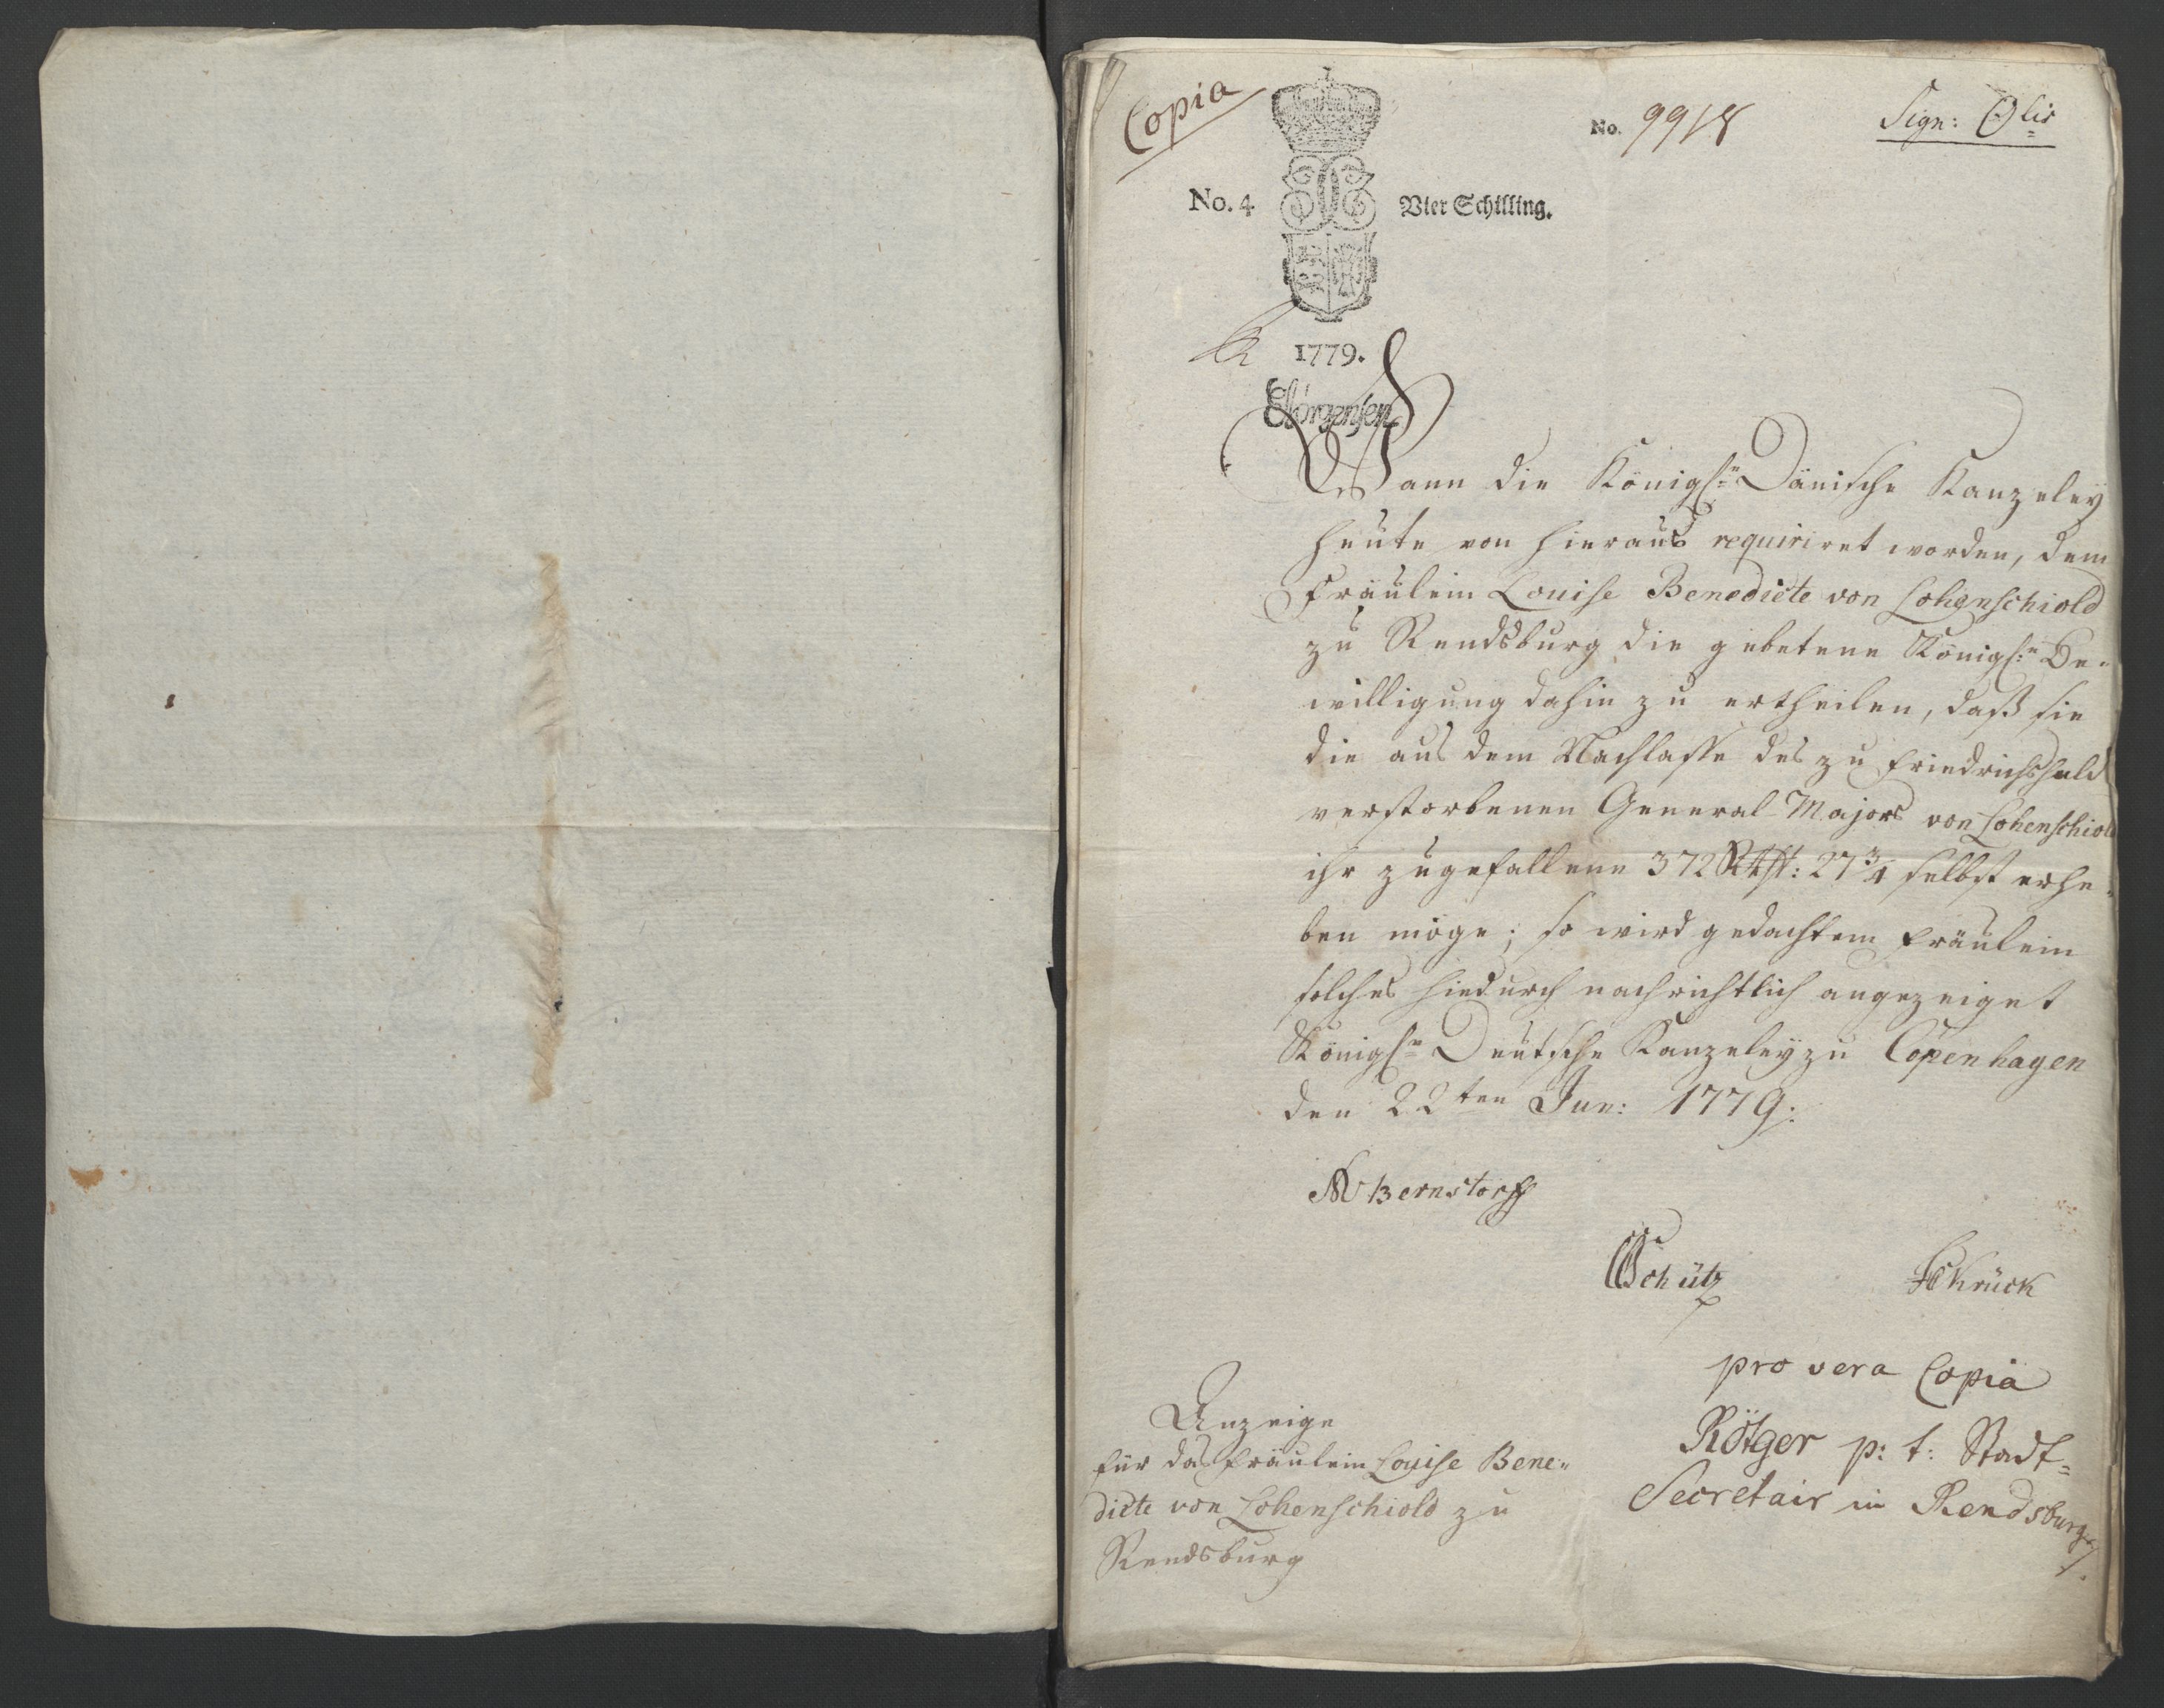 Copia
No. 9918
Sign: ☉lis
No. 4
Vier Schilling.
1779.
Wann die Königl:n Dänische Kanzeley
heute von hieraus requiriret worden, dem
Fräulein Louise Benedicte von Lohenschiold
zu Rendsburg die gebetene Königl:e Be-
willigung dahin zu ertheilen, daß sie
die aus dem Nachlasse des zu Friedrichshald
verstorbenen General-Majors von Lohenschiold
ihr zugefallene 372 Rthlr: 27 3/4 selbst erhe-
ben möge; so wird gedachtem Fräulein
solches hiedurch nachrichtlich angezeiget
Königl:e Deutsche Kanzeley zu Copenhagen
den 22ten Jun: 1779.
Bernstorff
Schütz
Schrück
pro vera Copia
Rötger p: t: Stadt-
Secretair in Rendsburg
Anzeige
für das Fräulein Louise Bene-
dicte von Lohenschiold zu
Rendsburg